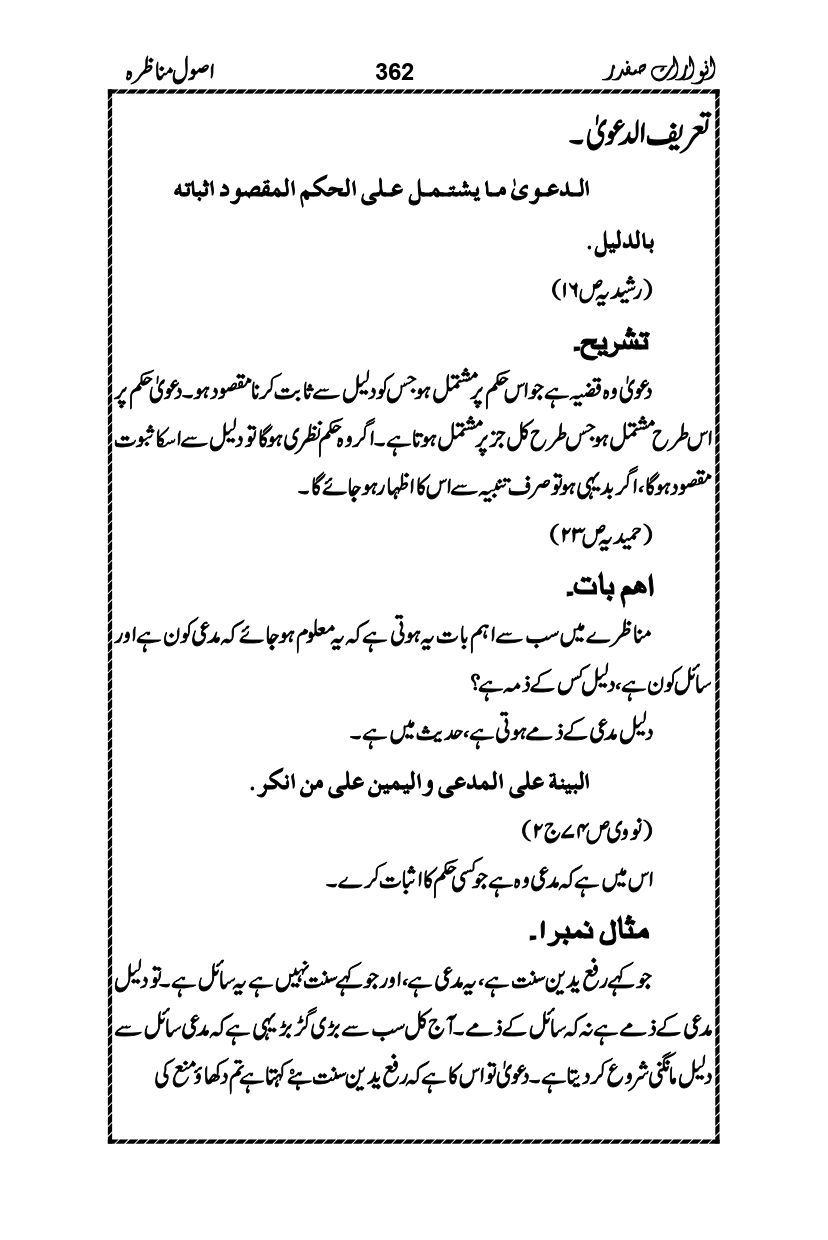 انوارات صفدر 362 اصول مناظرہ
تعریف الدعویٰ ۔
الدعویٰ ما یشتمل علی الحکم المقصود اثباته
بالدلیل.
(رشیدیہ ص ۱۶)
تشریح۔
دعویٰ وہ قضیہ ہے جو اس حکم پر مشتمل ہو جس کو دلیل سے ثابت کرنا مقصود ہو۔ دعویٰ حکم پر
اس طرح مشتمل ہو جس طرح کل جز پر مشتمل ہوتا ہے۔ اگر وہ حکم نظری ہوگا تو دلیل سے اسکا ثبوت
مقصود ہوگا، اگر بدیہی ہو تو صرف تنبیہ سے اس کا اظہار ہو جائے گا ۔
(حمیدیہ ص ۲۳)
اهم بات۔
مناظرے میں سب سے اہم بات یہ ہوتی ہے کہ یہ معلوم ہو جائے کہ مدعی کون ہے اور
سائل کون ہے، دلیل کس کے ذمہ ہے؟
دلیل مدعی کے ذمے ہوتی ہے، حدیث میں ہے۔
البینة علی المدعی والیمین علی من انکر.
(نووی ص ۷۴ ج ۲)
اس میں ہے کہ مدعی وہ ہے جو کسی حکم کا اثبات کرے۔
مثال نمبر ۱۔
جو کہے رفع یدین سنت ہے، یہ مدعی ہے، اور جو کہے سنت نہیں ہے یہ سائل ہے۔ تو دلیل
مدعی کے ذمے ہے نہ کہ سائل کے ذمے۔ آج کل سب سے بڑی گڑ بڑ یہی ہے کہ مدعی سائل سے
دلیل مانگنی شروع کر دیتا ہے۔ دعویٰ تو اس کا ہے کہ رفع یدین سنت ہے کہتا ہے تم دکھاؤ منع کی